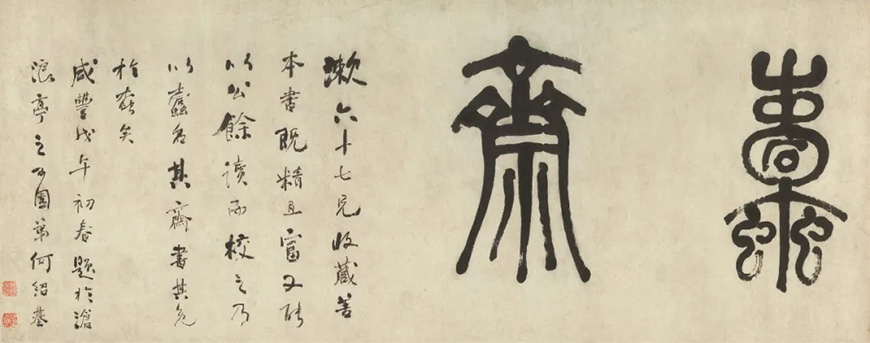 蠹齋
漱六十七兄收藏善
本書既精且富又能
以公餘讀而校之乃
以蠹名其齋書其免
於蠹矣
咸豐戊午初春題於滄
浪亭之可園弟何紹基